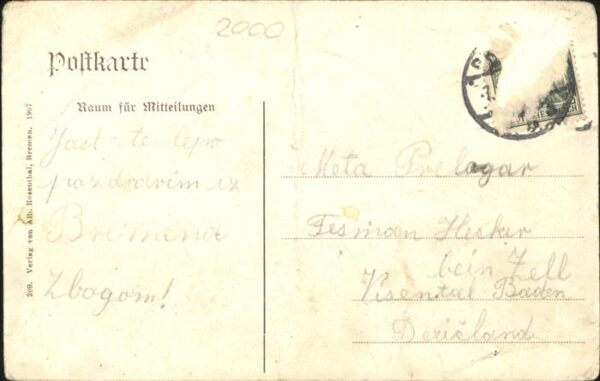 2000
Postkarte
Raum für Mitteilungen
Jast te lepo
pozdravim iz
Bremena
Zbogom!
Meta Prelogar
Tesman Heskar
bein Zell
Visental Baden
Deričland
209. Verlag von Alb. Rosenthal, Bremen, 1907